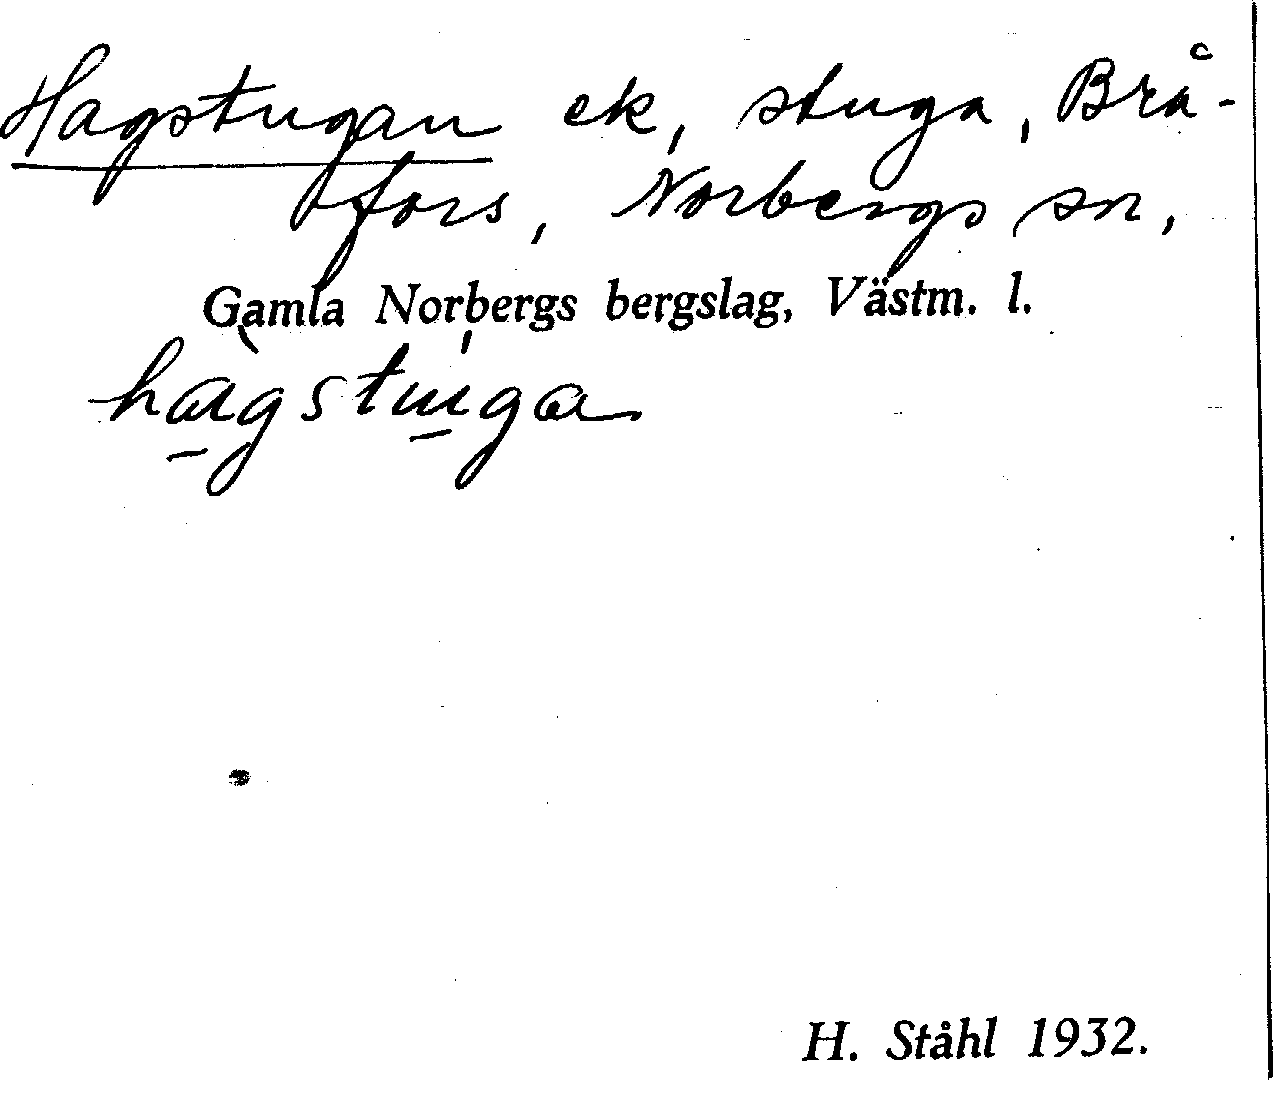 Hagstugan ek, stuga, Brå-
fors, Norbergs sn,
Gamla Norbergs bergslag, Västm. l.
hàgstúga
H. Ståhl 1932.